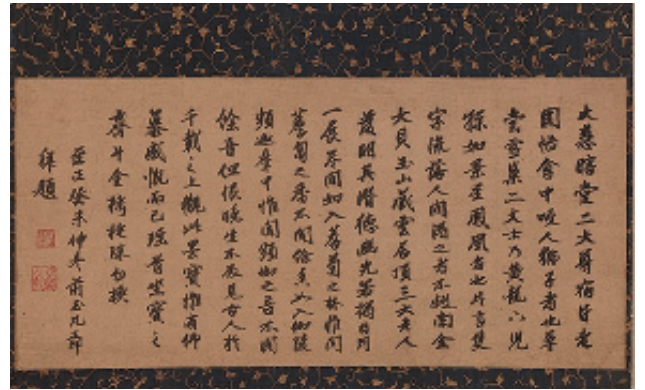 大慧瞎堂二大尊宿皆老
圜悟會中咬人獅子者也
雲雪巢二文士乃黄龍下児
孫如景星鳳凰者也片言隻
字流落人間得之者不翅南金
大貝玉山咸雲居頂三大老人
發明其潛德幽光若揭日月
一展卷間如入薝蔔之林惟聞
薝蔔之香不聞餘香如入伽陵
頻迦中惟聞頻伽之音不聞
餘音但恨晚生不及見古人於
千載之上觀此墨寶惟有仰
慕感慨而已瑤首座寶之
片金
至正癸未仲冬前玉几
拜題